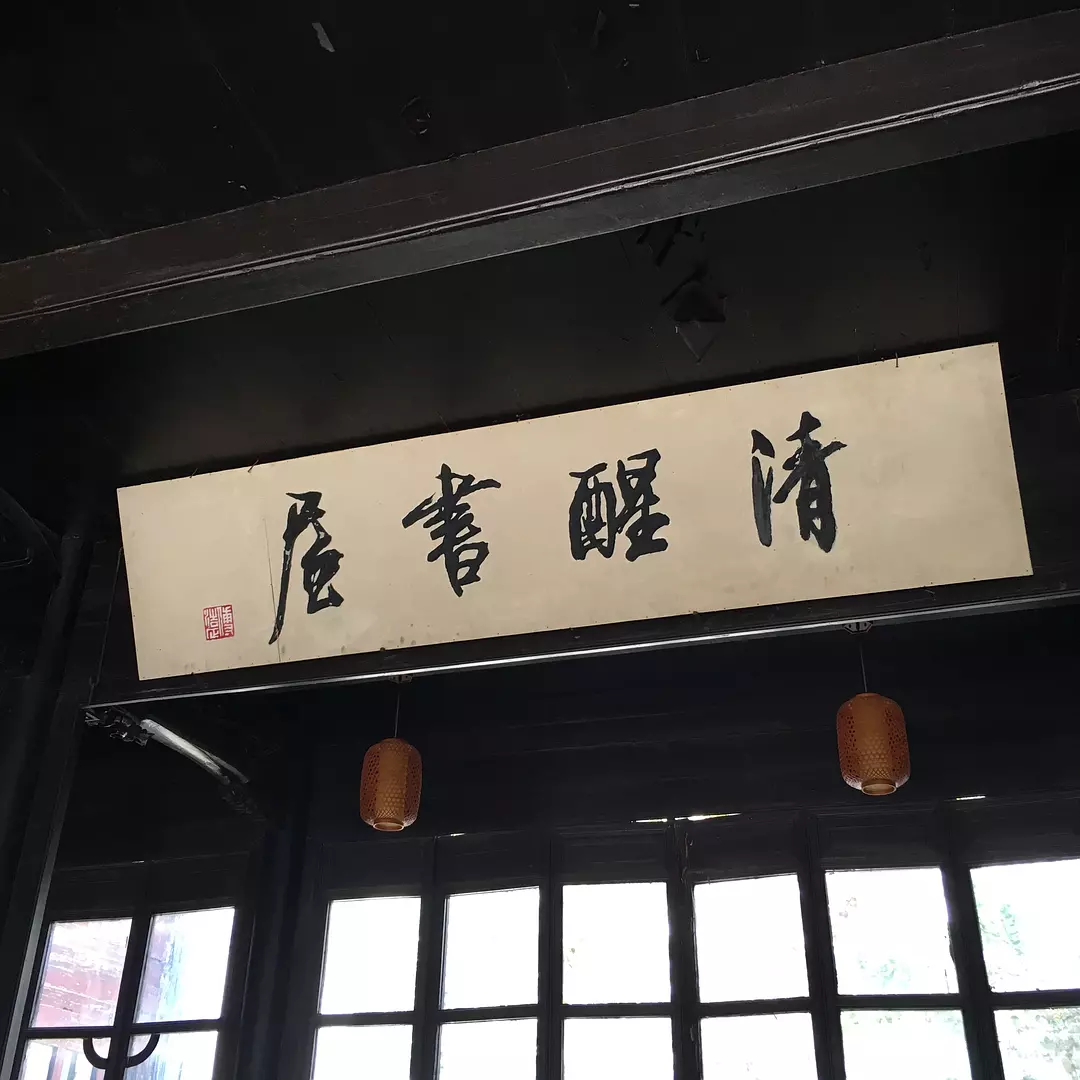 清醒書屋